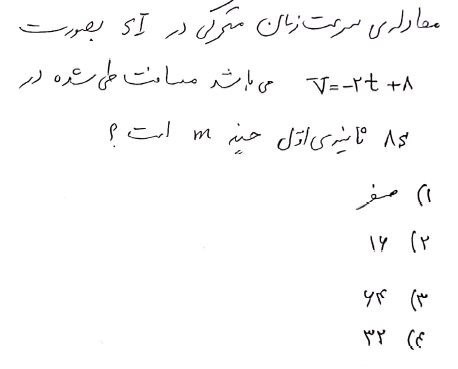 معادله‌ی سرعت زمان متحرکی در SI بصورت
V=-۲t+۸ می باشد مسافت طی شده در
۸s ثانیه‌ی اوّل چند m است ؟
۱) صفر
۲) ۱۶
۳) ۶۴
۴) ۳۲